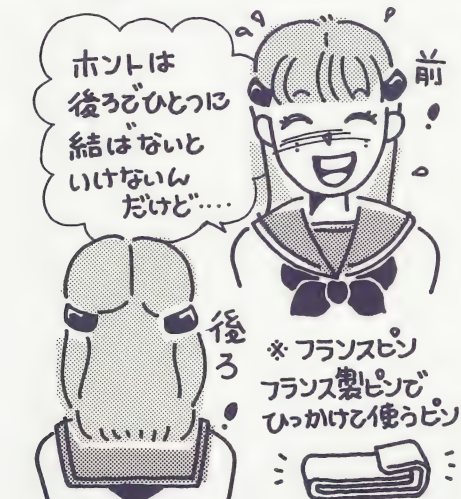 ホントは
後ろでひとつに
結ばないと
いけないん
だけど‥‥
前
後ろ
※フランスピン
フランス製ピンで
ひっかけて使うピン